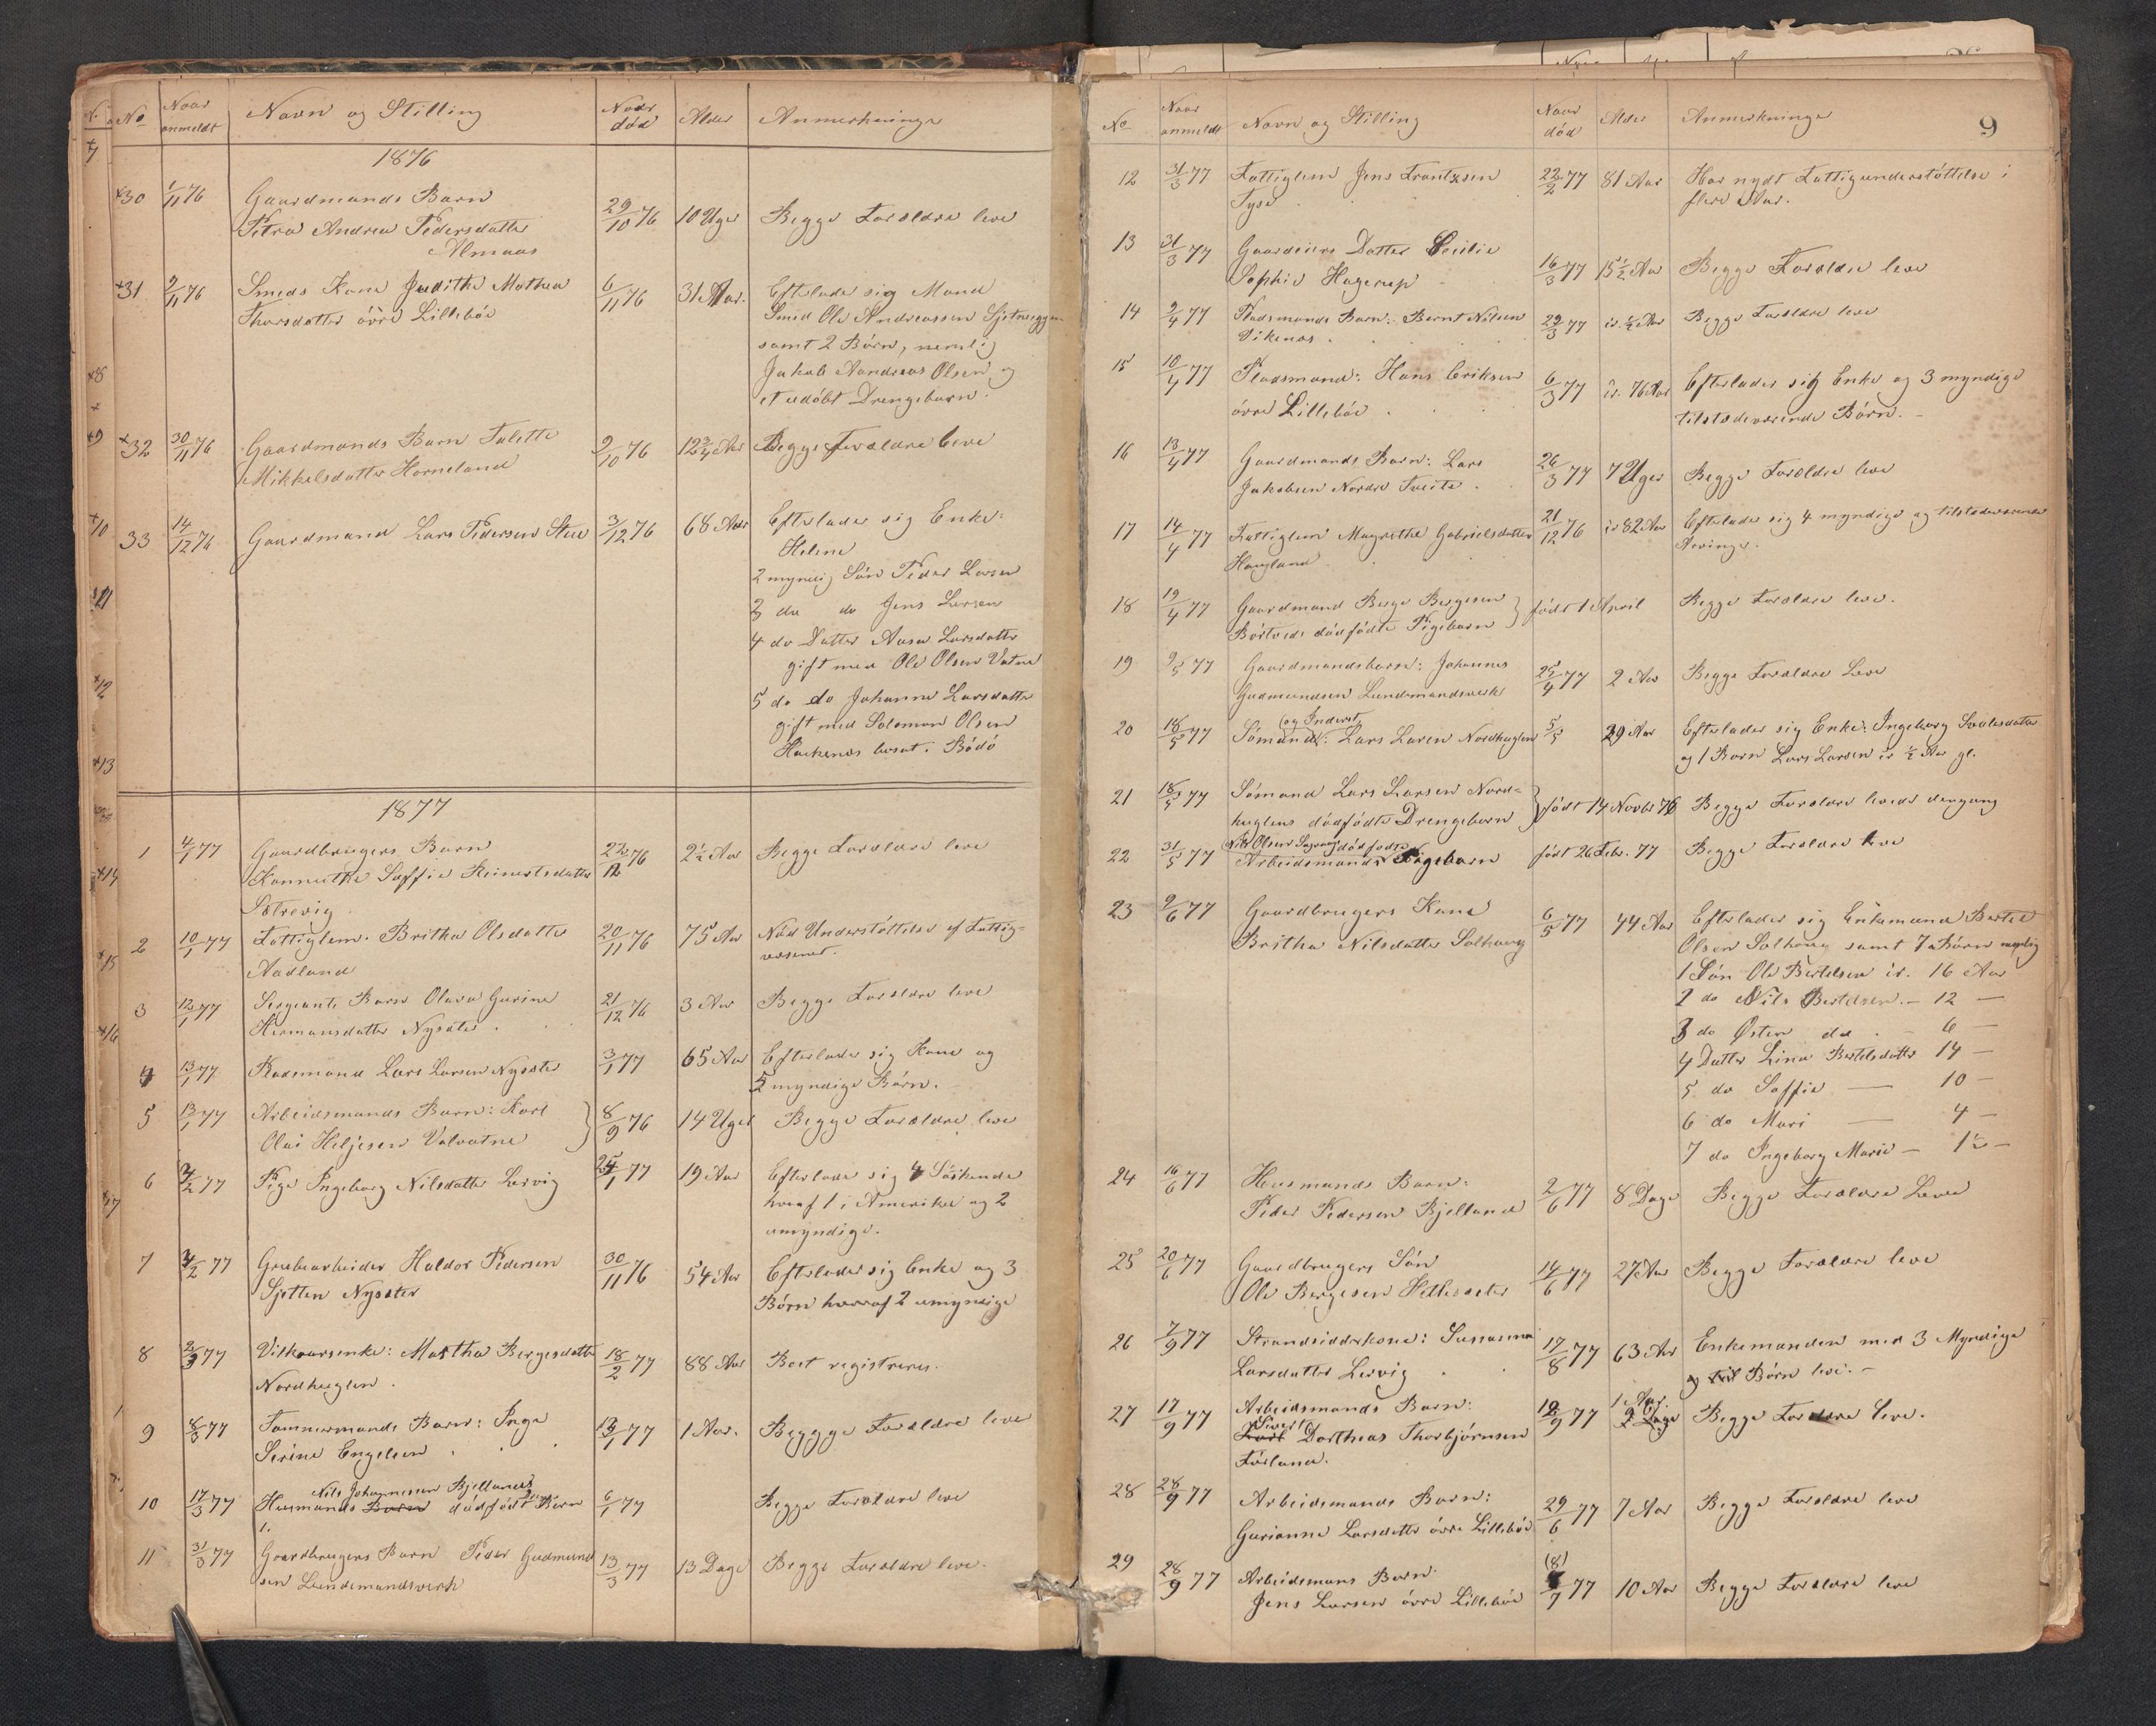 No Naar anmeldt Navn og Stilling Naar død Alder Anmerkninger
1876
30 1/11 76 Gaardmands Barn
Petra Andrea Pedersdatter 29/10 76 10 Uger Begge Forældre leve
Almaas
31 9/11 76 Smeds Kone Judithe Mathea 6/11 76 31 Aar. Efterlader sig Mand
Thorsdatter övre Lillebøe Smed Ole Andreassen
samt 2 Børn, nemlig
Jakob Aandreas Olsen og
et udøbt Drengebarn.
32 30/11 76 Gaardmands Barn Talette 9/10 76 12 3/4 Aar Begge Forældre leve
Mikkelsdatter Horneland
33 14/12 76 Gaardmand Lars Pedersen Stue 3/12 76 68 Aar Efterlader sig Enke:
Helene
2 myndig Søn Peder Larsen
3 do do Jens Larsen
4 do Datter Aasa Larsdatter
gift med Ole Olsen Vatne
5 do do Johanna Larsdatter
gift med Salomon Olsen
bosat i Bødø
1877
1 4/1 77 Gaardbrugers Barn 22/12 76 2 1/2 Aar Begge Forældre leve
Saffie Reinertsdatter
Sætrevig
2 10/1 77 Fattiglem. Britha Olsdatter 20/11 76 75 Aar Nød Understøttelse af Fattig-
Aadland væsenet.
3 12/1 77 Sergeants Barn Olava Gurine 21/12 76 3 Aar Begge Forældre leve
Hermansdatter Nysæter.
4 13/1 77 Pladsmand Lars Larsen Nysæter 3/1 77 65 Aar Efterlader sig Kone og
5 myndige Børn.
5 13/1 77 Arbeidsmands Barn: Karl 8/9 76 14 Uger Begge Forældre leve
Olai Heljesen Valvatne
6 3/2 77 Pige Ingeborg Nilsdatter Lervig 25/1 77 19 Aar Efterlader sig 4 Söskende
hvoraf 1 i Amerika og 2
umyndige.
7 3/2 77 Grubearbeider Haldor Pedersen 30/11 76 54 Aar Efterlader sig Enke og 3
Sjetten Nysæter Børn hvoraf 2 umyndige
8 2/3 77 Vilkaarsenke: Martha Bergesdatter 18/2 77 88 Aar Boet registreres.
Nordhuglen.
9 8/3 77 Tømmermands Barn: Inga 13/1 77 1 Aar. Beggge Forældre leve
Serine Engelsen
10 17/3 77 Nils Johannessen Bjellands
Husmands Barn dødfødt Barn 6/1 77 Begge Forældre leve
11 31/3 77 Gaardbrugers Barn Peder Gudmund 13/3 77 13 Dage Begge Forældre leve.
sen Lundemandsverk
9
No Naar anmeldt Navn og Stilling Naar død Alder Anmerkninger
12 31/3 77 Fattiglem Jens Frantzsen 22/2 77 81 Aar Har nydt Fattigunderstøttelse i
Tyse flere Aar.
13 31/3 77 Gaardeiers Datter Cecilie
Sophie Hagerup 16/3 77 15 1/2 Aar Begge Forældre leve
14 9/4 77 Pladsmands Barn: Bernt Nilsen 29/3 77 ir. 1/2 Aar Begge Forældre leve
Vikenæs.
15 10/4 77 Pladsmand: Hans Eriksen 6/3 77 ir. 76 Aar Efterlader sig Enke og 3 myndige
övre Lillebøe. tilstedeværende Børn.
16 13/4 77 Gaardmands Barn: Lars 26/3 77 7 Uger Begge Forældre leve
Jakobsen Nordre Tveite.
17 14/4 77 Fattiglem Magrethe Gabrielsdatter 21/12 76 ir 82 Aar Efterlader sig 4 myndige og tilstedeværende
Haugland Arvinger.
18 19/4 77 Gaardmand Berge Bergesen født 1 April Begge Forældre leve.
Börtveds dødfødte Pigebarn
19 9/5 77 Gaardmandsbarn: Johannes
Gudmundsen Lundemandsverk 25/4 77 2 Aar Begge Forældre Leve
20 18/5 77 og Inderst
Sömand: Lars Larsen Nordhuglen 5/5 29 Aar Efterlader sig Enke: Ingeborg
og 1 Barn Lars Larsen ir 1/2 Aar gl.
21 18/5 77 Sömand Lars Larsen Nord-
huglens dødfødte Drengebarn født 14 Novbr 76 Begge Forældre levede dengang
22 31/5 77 Nils Olsen dødfødte
Arbeidsmands Pigebarn født 26 Febr. 77 Begge Forældre leve
23 9/6 77 Gaardbrugers Kone 6/5 77 44 Aar Efterlader sig Enkemand Bertel
Britha Nilsdatter Solhaug Olsen Solhaug samt 7 Børn neml.
1 Søn Ole Bertelsen ir. 16 Aar
2 do Nils Bertelsen. — 12 —
3 do Østen do. — 6 —
4 Datter Lina Bertelsdatter 14 —
5 do Saffie — 10 —
6 do Mari — 4 —
7 do Ingeborg Marie — 1 1/2 —
24 16/6 77 Husmands Barn:
Peder Pedersen Bjelland 2/6 77 8 Dage Begge Forældre Leve
25 20/6 77 Gaardbrugers Søn
Ole Bergesen Hellesæter 14/6 77 27 Aar Begge Forældre leve
26 7/9 77 Strandsidderkone: Susanna 17/8 77 63 Aar Enkemanden med 3 Myndige
Larsdatter Lervig Børn leve. —
27 17/9 77 Arbeidsmands Barn: 12/9 77 1 Aar Begge Forældre leve.
Sivert
Karl Dortheas Thorbjørnsen
Førland.
28 28/9 77 Arbeidsmands Barn:
Gurianne Larsdatter övre Lillebøe 29/6 77 7 Aar Begge Forældre leve
29 28/9 77 Arbeidsmans Barn (8)
Jens Larsen övre Lillebøe 8/7 77 10 Aar Begge Forældre leve